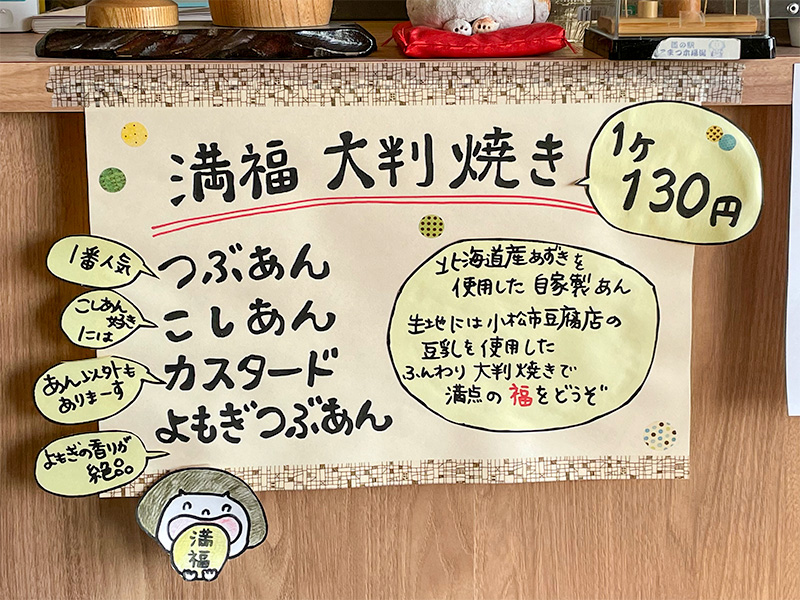 満福 大判焼き
1ヶ
130円
1番人気
つぶあん
こしあん
好き
には
こしあん
あん以外も
ありまーす
カスタード
よもぎの香りが
絶品
よもぎつぶあん
北海道産あずきを
使用した 自家製あん
生地には小松市豆腐店の
豆乳を使用した
ふんわり大判焼きで
満点の福をどうぞ
満
福